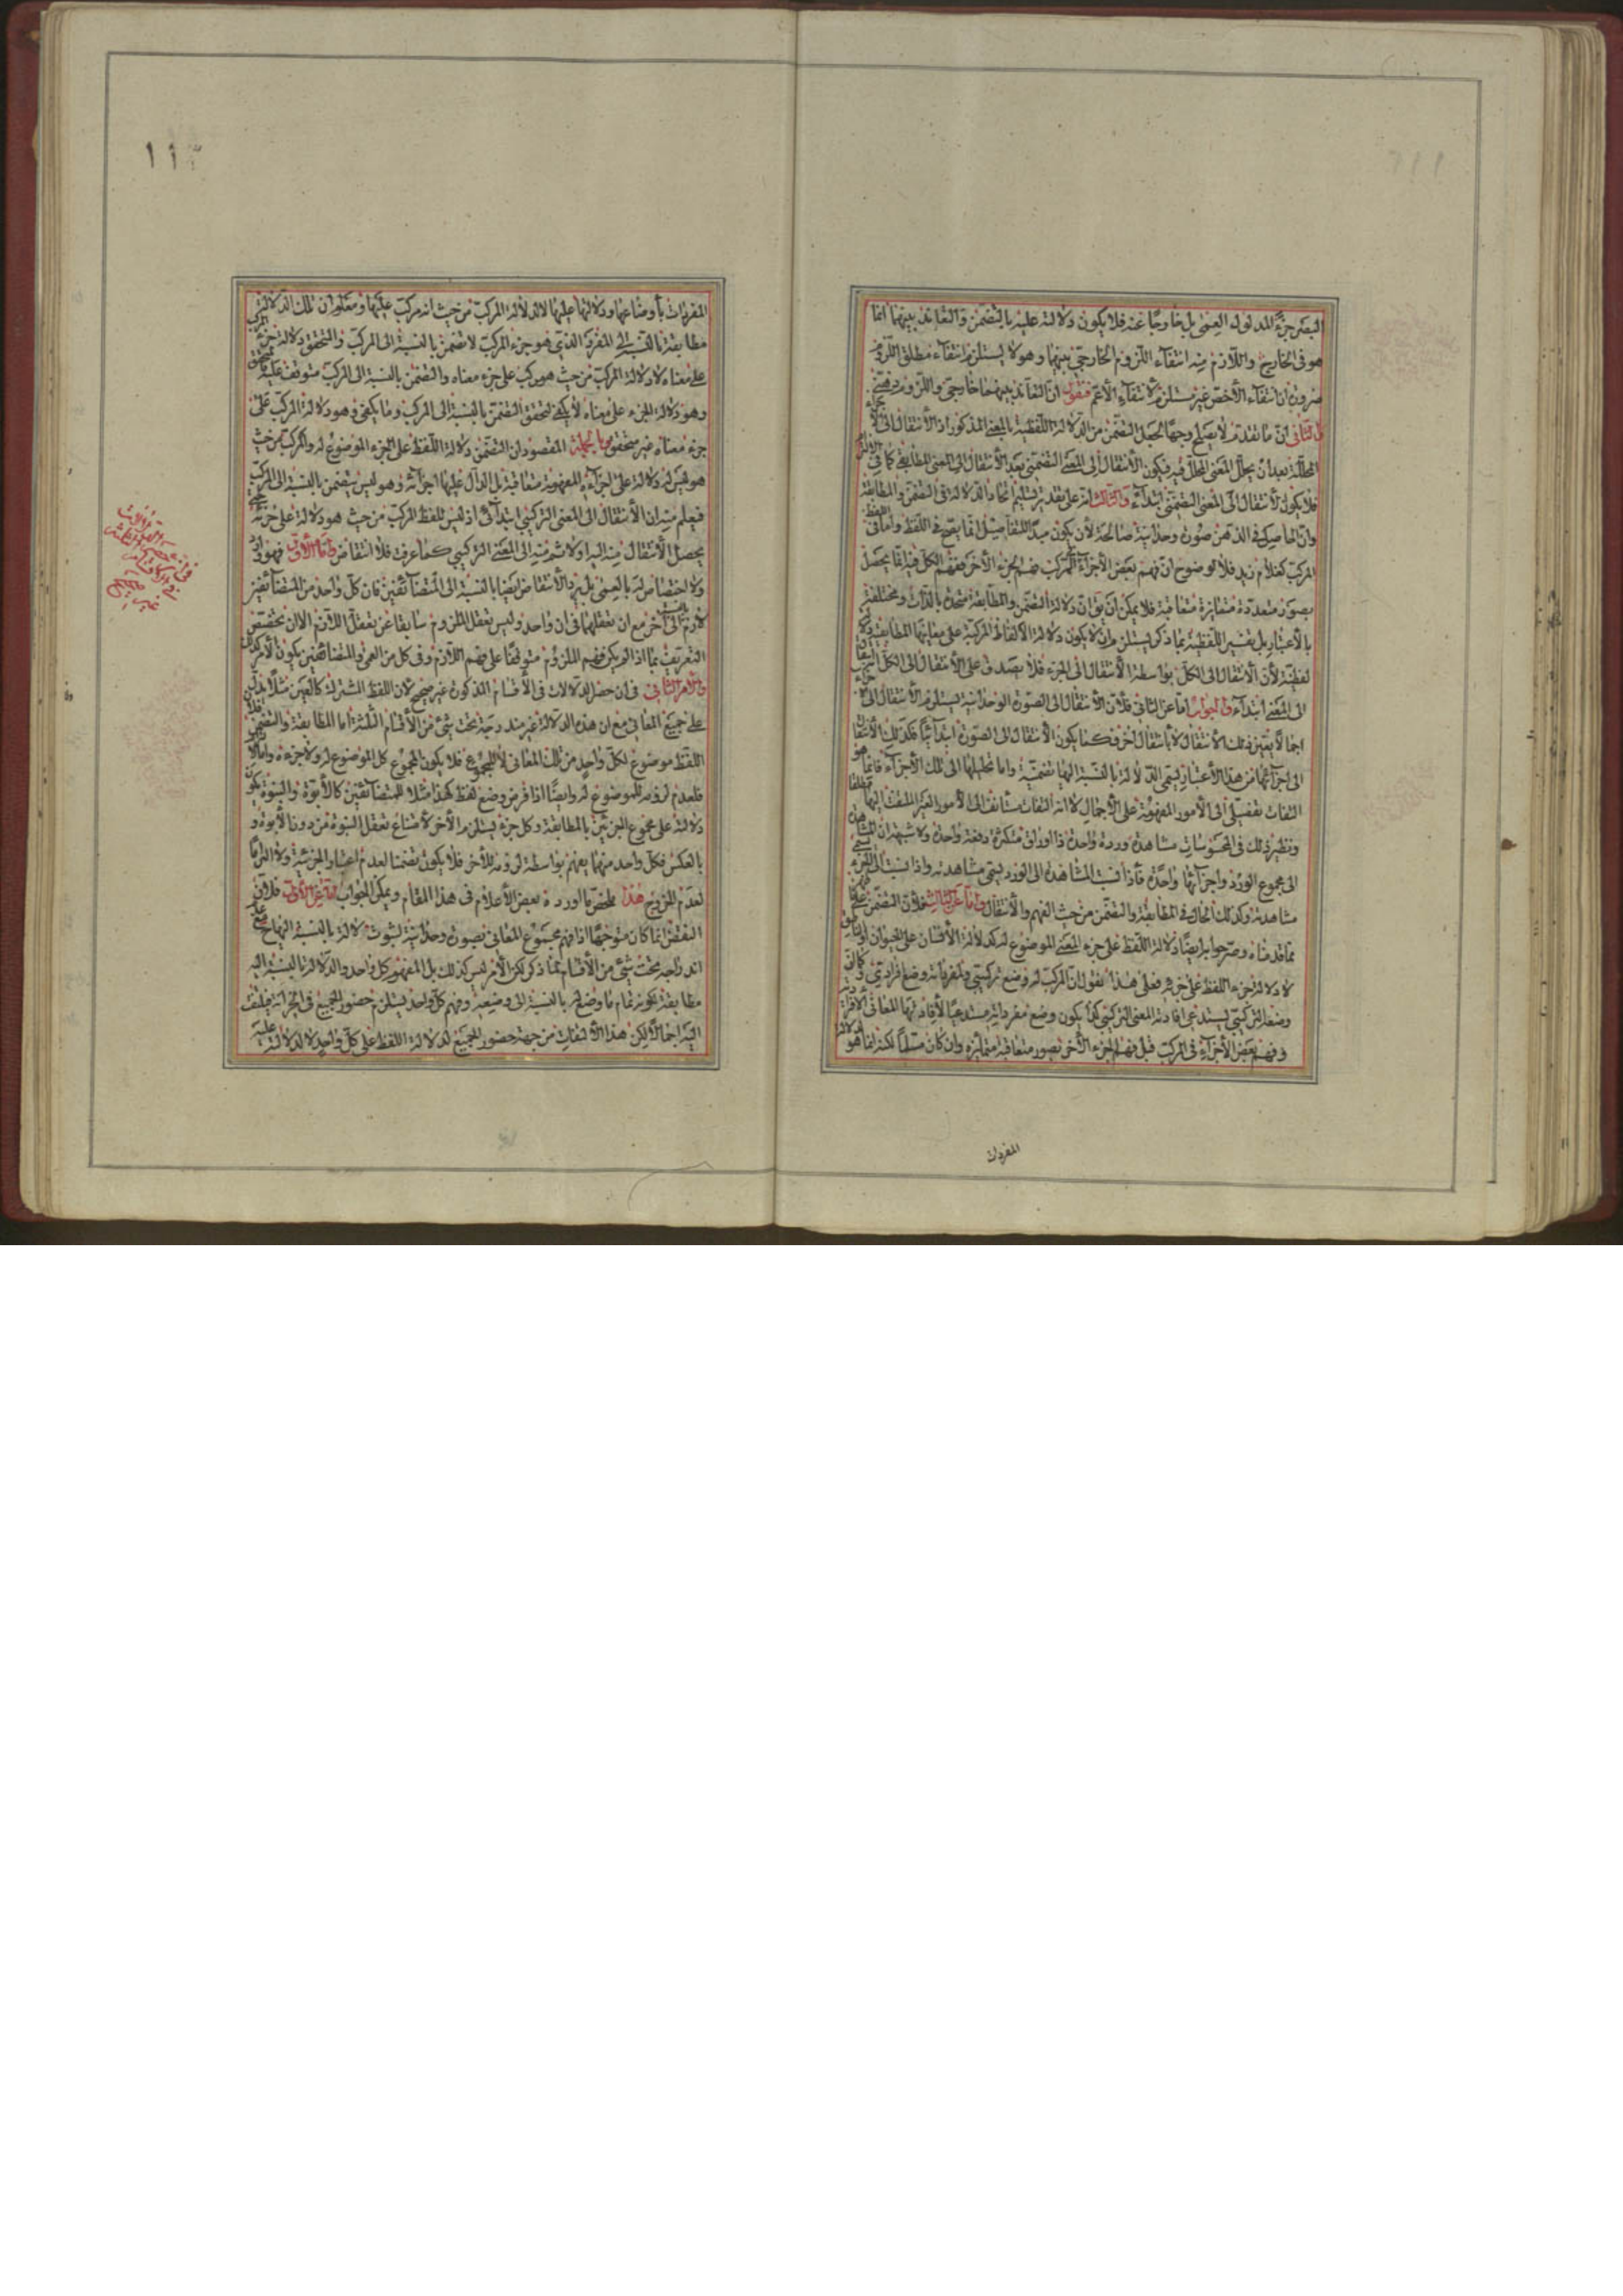 البصر جزء المدلول العمى بل خارجا عنه فلا يكون دلالته عليه بالتضمن والتعاند بينهما انما
هو فى الخارج واللازم منه انتفاء اللزوم الخارجى بينهما وهو لا يستلزم انتفاء مطلق اللزوم
ضرورة ان انتفاء الأخص غير مستلزم لانتفاء الأعم فنقول ان التعاند بينهما خارجى واللزوم ذهنى
والثانى ان ما تقدم لا يصلح وجها لجعل التضمن من الدلالة اللفظية بالمعنى المذكور اذ الانتقال الى الاجزاء
المحللة بعد ان يحلل المعنى المحلل فيه فيكون الانتقال الى المعنى التضمنى بعد الانتقال الى المعنى المطابقى كما فى الالتزام
فلا يكون الانتقال الى المعنى التضمنى ابتداء والثالث انه على تقدير تسليم اتحاد الدلالة فى التضمن والمطابقة
وان الحاصل فى الذهن صورة وحدانية صالحة لأن يكون مبدأ للتفاصيل انما يصح فى اللفظ واما فى
المركب كغلام زيد فلا لوضوح ان فهم بعض الأجزاء المركب فهم الجزء الآخر ففهم الكل فيه انما يحصل
بصور متعددة متغايرة متعاقبة فلا يمكن ان يق ان دلالة التضمن والمطابقة متحدة بالذات ومختلفة
بالاعتبار بل تفسير اللفظية بما ذكر يستلزم ان لا يكون دلالة الالفاظ المركبة على معانيها المطابقية
لفظية لأن الانتقال الى الكل بواسطة الانتقال الى الجزء فلا يصدق على الانتقال الى الكل
الى المعنى ابتداء والجواب اما عن الثانى فلأن الانتقال الى الصورة الوحدانية يستلزم الانتقال الى
اجمالا بعين ذلك الانتقال لا بانتقال اخر فكما يكون الانتقال الى الصورة ابتدائيا فكذلك الانتقال
الى اجزائها من هذا الاعتبار يسمى الدلالة بالنسبة اليها تضمنية واما تحليلها الى تلك الأجزاء فانما هو
التفات تفصيلى الى الأمور المفهومة على الاجمال لا انه التفات مستأنف الى الأمور الغير الملتفت اليها مطلقا
ونظير ذلك فى المحسوسات مشاهدة وردة واحدة ذا اوراق متكثرة دفعة واحدة ولا شبهة ان المشاهدة
الى مجموع الورد واجزائها واحدة فاذا نسبت المشاهدة الى الورد يسمى مشاهدته واذا نسبت الى الجزء
مشاهدته وكذلك الحال فى المطابقة والتضمن من حيث الفهم والانتقال واما عن الثالث فلأن التضمن على
ما قدمناه وصرحوا به ايضا دلالة اللفظ على جزء المعنى الموضوع له كدلالة الانسان على الحيوان او الناطق
لا دلالة جزء اللفظ على جزئه فعلى هذا نقول ان المركب له وضع تركيبى ولمفرداته وضع افرادى
وضعه التركيبى يستدعى افادته المعنى التركيبى كما يكون وضع مفرداته مستدعيا لافادتها المعانى الافرادية
وفهم بعض الأجزاء فى المركب قبل فهم الجزء الآخر بصور متعاقبة متمايزة وان كان مسلما لكنه انما هو
المفردات
١١٢
المفردات بأوضاعها ودلالتها عليها لا لدلالة المركب من حيث انه مركب عليها ومعلوم ان تلك الدلالة
مطابقة بالنسبة الى المفرد الذى هو جزء المركب لا تضمن بالنسبة الى المركب والتحقق دلالة جزء المركب
على معناه لا دلالة المركب من حيث هو مركب على جزء معناه والتضمن بالنسبة الى المركب متوقف عليه
وهو دلالة الجزء على معناه لا يكفى لتحقق التضمن بالنسبة الى المركب وما يكفى وهو دلالة المركب على
جزء معناه غير متحقق وبالجملة المقصود ان التضمن دلالة اللفظ على الجزء الموضوع له والمركب من حيث
هو ليس له دلالة على اجزاء المفهومة متعاقبة بل الدال عليها اجزائه وهو ليس بتضمن بالنسبة الى المركب
فيعلم منه ان الانتقال الى المعنى التركيبى ابتدائى اذ ليس للفظ المركب من حيث هو دلالة على جزئه
يحصل الانتقال منه اليه اولا ثم منه الى المعنى التركيبى كما عرفت فلا انتقاض واما الأول فهو
ولا اختصاص له بالعمى بل يرد الانتقاض ايضا بالنسبة الى المتضائفين فان كل واحد من المتضائفين
لازم الى آخر مع ان تعقلهما فى ان واحد وليس تعقل الملزوم سابقا عن تعقل اللازم الا ان نخصص
التعريف بما اذا لم يكن فهم الملزوم متوقفا على فهم اللازم وفى كل من العمى والمتضائفين يكون الأمر كذلك
والأمر الثانى فى ان حصر الدلالات فى الأقسام المذكورة غير صحيح لان اللفظ المشترك كالعين مثلا يدل
على جميع المعانى مع ان هذه الدلالة غير مندرجة تحت شئ من الأقسام الثلثة اما المطابقة والتضمن فلأن
اللفظ موضوع لكل واحد من تلك المعانى لا للمجموع فلا يكون المجموع كل الموضوع له ولا جزءه واما الالتزام
فلعدم لزومه للموضوع له وايضا اذا فرض وضع لفظ كهذا مثلا للمتضائفين كالأبوة والبنوة يكون
دلالته على مجموع الجزئين بالمطابقة وكل جزء يستلزم الآخر لامتناع تعقل البنوة من دون الأبوة و
بالعكس فكل واحد منهما يفهم بواسطة لزومه للآخر فلا يكون تضمنا لعدم اعتبار الجزئية ولا التزاما
لعدم الخروج هذا ملخص ما اورده بعض الأعلام فى هذا المقام ويمكن الجواب اما عن الأول فلأن
النقض انما كان متوجها اذا فهم مجموع المعانى بصورة وحدانية لثبوت دلالة بالنسبة اليها
اندراجه تحت شئ من الأقسام بما ذكر لكن الأمر ليس كذلك بل المفهوم كل واحد والدلالة بالنسبة اليه
مطابقة لكونه تمام ما وضع له بالنسبة الى وضعيه وفهم كل واحد يستلزم حضور الجميع فى الخزانة فيلتفت
اليه اجمالا لكن هذا الالتفات من جهة حضور الجميع لدلالة اللفظ على كل واحد لا لدلالته عليه